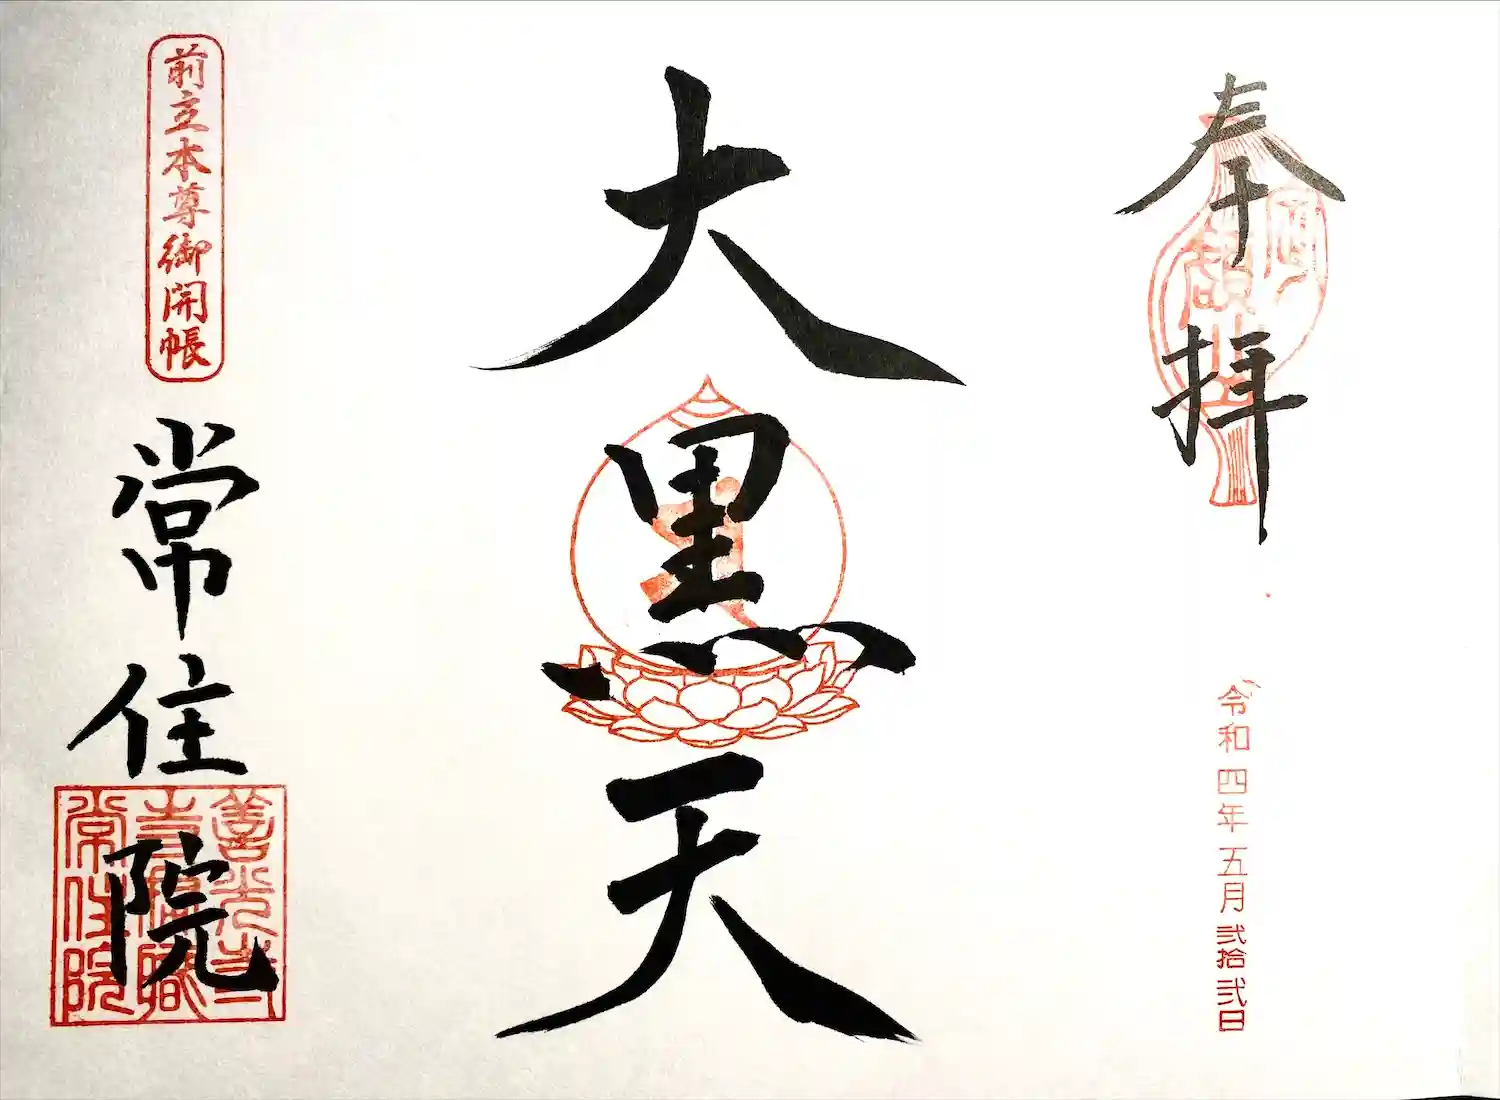 奉拝
令和四年五月弐拾弐日
大黒天
前立本尊御開帳
常住院